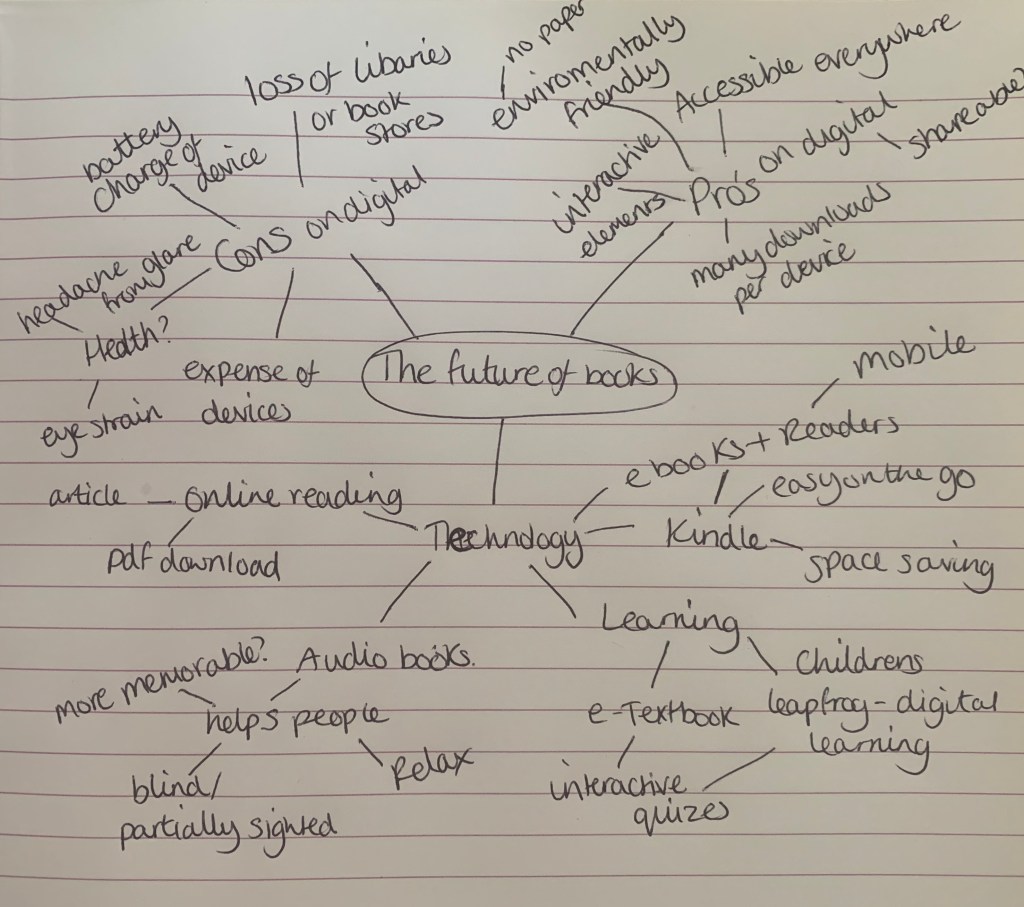 loss of libaries
or book
stores
battery
charge of
device
Cons on digital
headache
from glare
Health?
eye strain
expense of
devices
no paper
enviromentally
friendly
Accessible everywhere
interactive
elements
Pro's on digital
shareable?
many downloads
per device
The future of books
mobile
ebooks + Readers
easy on the go
Kindle
space saving
article – online reading
pdf download
Technology
Learning
Childrens
leapfrog – digital
learning
e-Textbook
interactive
quizes
Audio books.
more memorable?
helps people
Relax
blind/
partially sighted